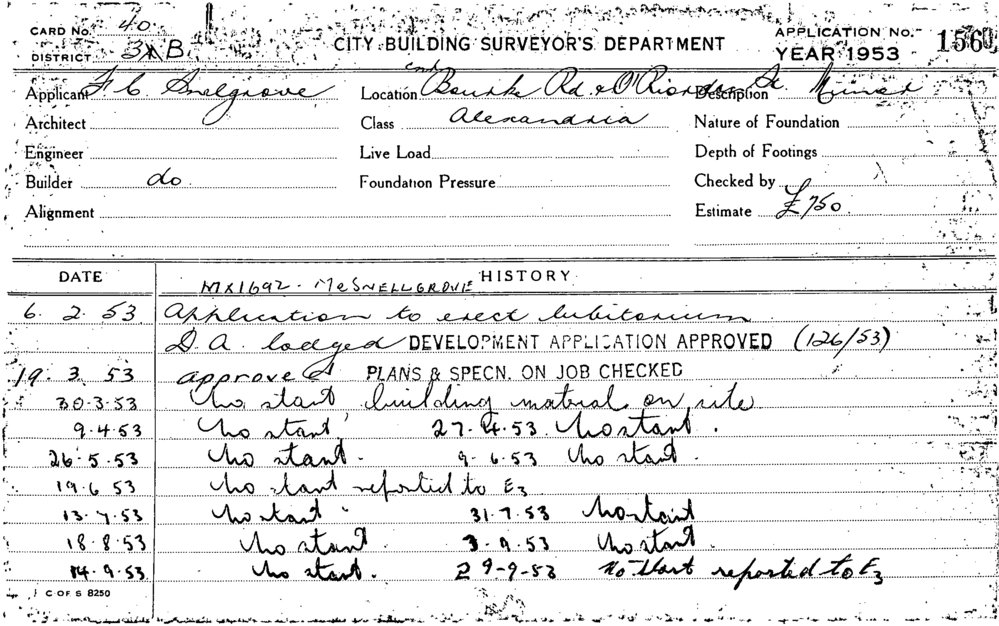 CARD No. 40
DISTRICT 3 B
CITY BUILDING SURVEYOR'S DEPARTMENT
APPLICATION No. 1560
YEAR 1953
Applicant F C Snelgrove Location Cnr Bourke Rd & O'Riordan St. Description Minor
Architect Class Alexandria Nature of Foundation
Engineer Live Load Depth of Footings
Builder do. Foundation Pressure Checked by
Alignment Estimate £750
DATE HISTORY
MX1692. Mr SNELLGROVE
6. 2. 53 Application to erect lubitorium
D.A. lodged DEVELOPMENT APPLICATION APPROVED (126/53)
19. 3. 53 approved PLANS & SPECN. ON JOB CHECKED
30·3·53 No start building material on site
9·4·53 No start 27·4·53 No start.
26·5·53 No start. 9·6·53 No start.
19·6 53 No start reported to E3
13·7·53 No start. 31·7·53 No start
18·8·53 No start. 3·9·53 No start.
14·9·53 No start. 29-9-53 No start reported to E3
C OF S 8250